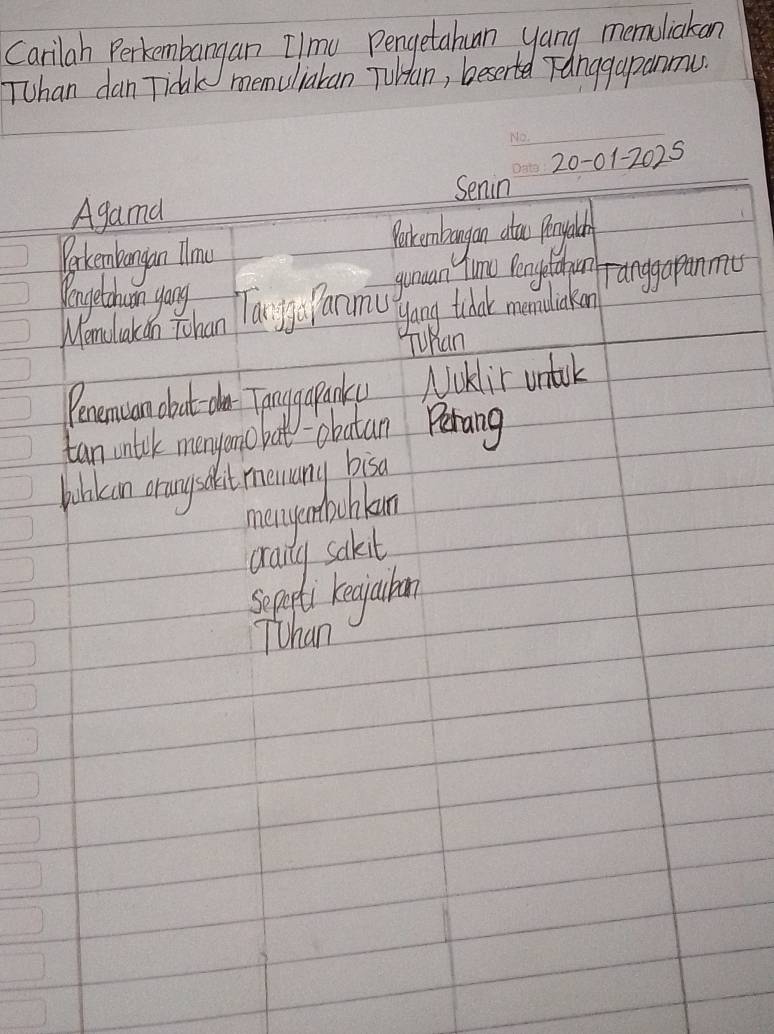 Carilah Perkembangan Ilmu Pengetahuan yang memuliakan
Tuhan dan Tidak memuliakan Tuhan, beserta Tanggapanmu.
No.
Date: 20-01-2025
Senin
Agama
Perkembangan Ilmu
Pengetahuan yang
Memuliakan Tuhan
Tanggapanmu
Perkembangan atau Penyalah
gunaan Ilmu Pengetahuan
yang tidak memuliakan
Tuhan
Tanggapanmu
Penemuan obat-oba
tan untuk menyem
buhkan orang sakit
Tanggapanku
obat-obatan
memang bisa
menyembuhkan
orang sakit
seperti keajaiban
Tuhan
Nuklir untuk
Perang